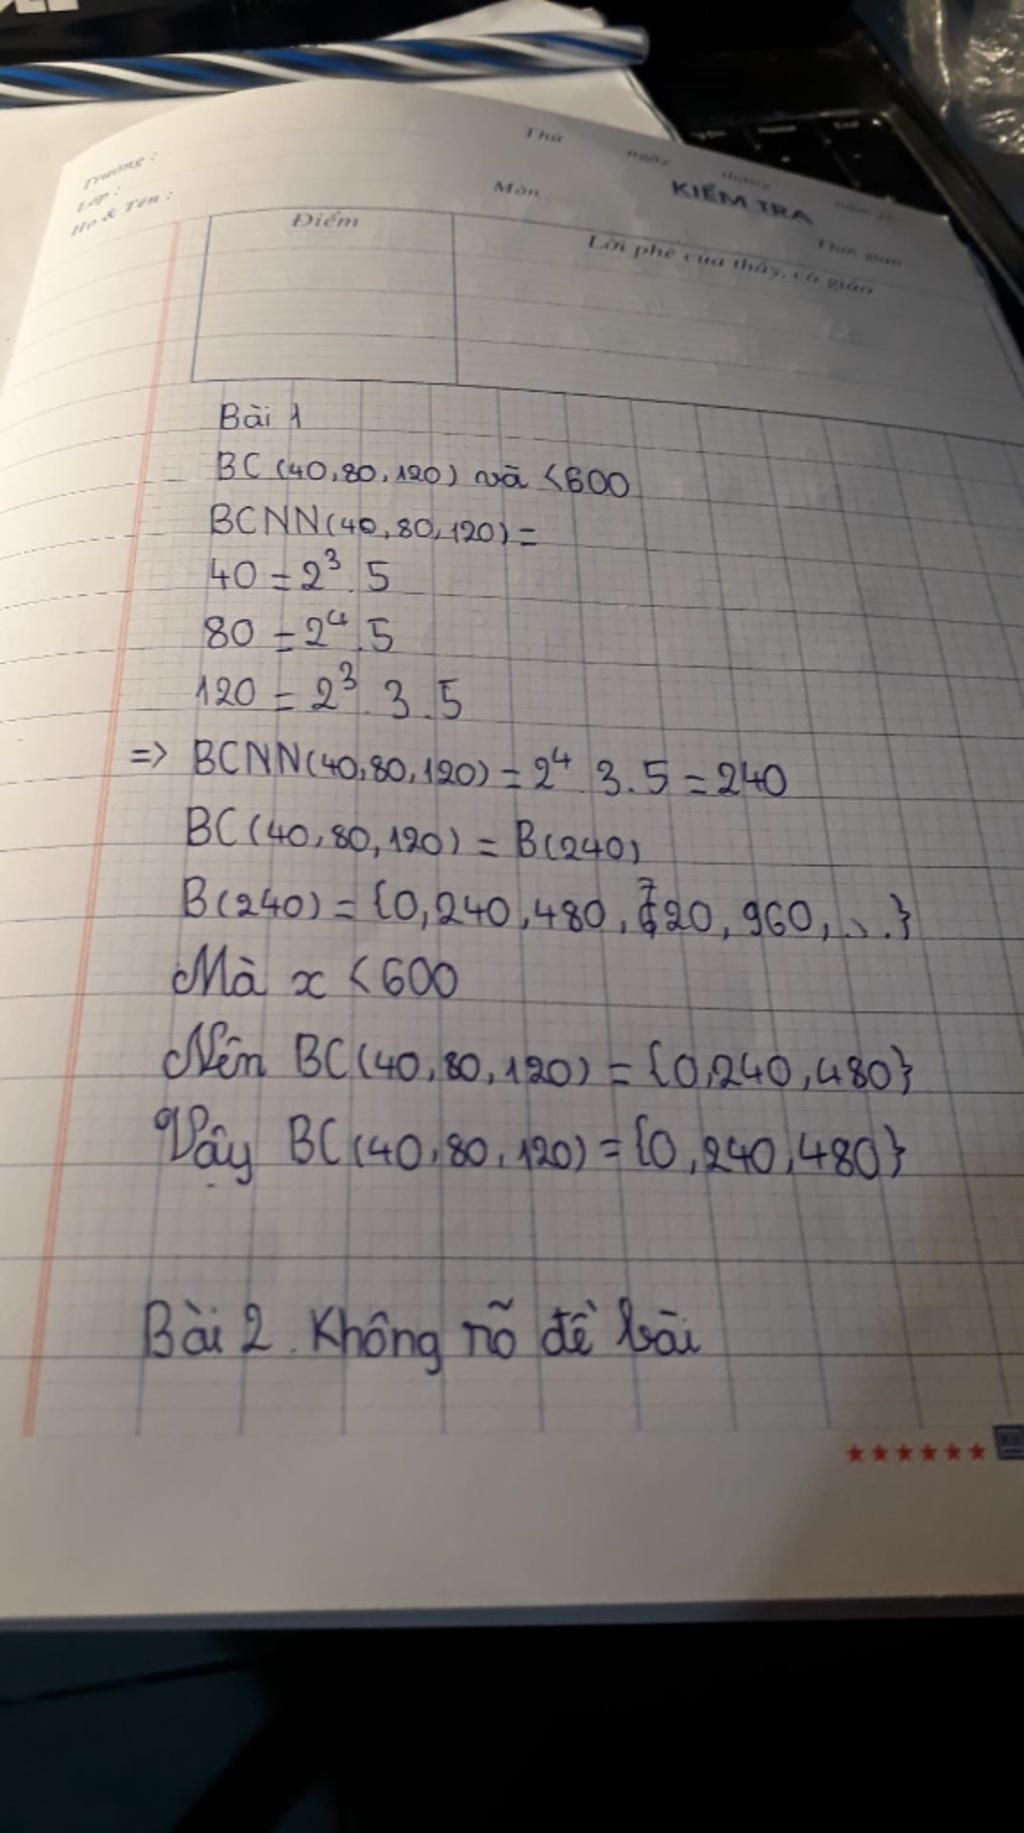 Thứ ngày tháng năm 20
Trường :
Lớp :
Họ & Tên :
Môn :
KIỂM TRA
Thời gian
Điểm
Lời phê của thầy, cô giáo
Bài 1
BC (40,80,120) và <600
BCNN(40,80,120)=
40 = 2³. 5
80 = 2⁴. 5
120 = 2³. 3. 5
=> BCNN(40,80,120) = 2⁴. 3. 5 = 240
BC(40,80,120) = B(240)
B(240) = {0,240,480,720,960,...}
Mà x <600
Nên BC(40,80,120) = {0,240,480}
Vậy BC(40,80,120) = {0,240,480}
Bài 2. Không rõ đề bài